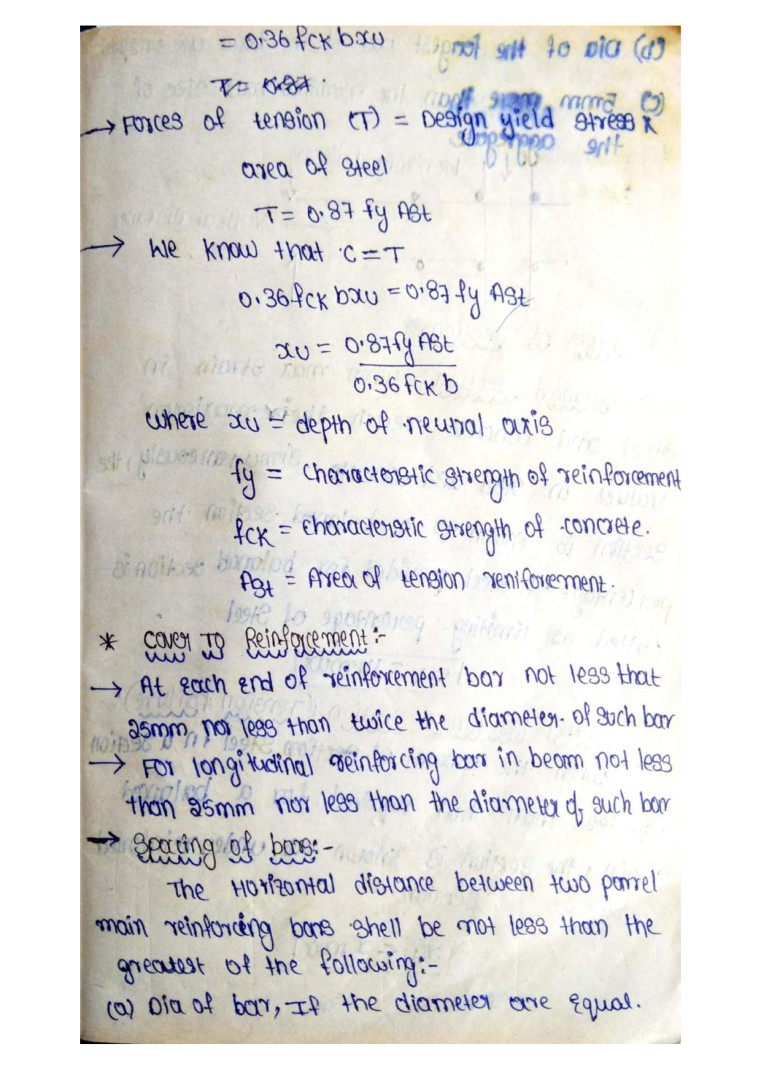 = 0.36 fck bxu
T = 0.87.
→ Forces of tension (T) = Design yield stress x
area of steel
T = 0.87 fy Ast
→ We know that C = T
0.36 fck bxu = 0.87 fy Ast
xu = 0.87 fy Ast
0.36 fck b
where xu = depth of neutral axis
fy = characterstic strength of reinforcement
fck = characterstic strength of concrete.
Ast = Area of tension reniforcement.
* Cover To Reinforcement:-
→ At each end of reinforcement bar not less that
25mm nor less than twice the diameter of such bar
→ For longitudinal reinforcing bar in beam not less
than 25mm nor less than the diameter of such bar
→ Spacing of bars:-
The Horizontal distance between two parrel
main reinforcing bars shell be not less than the
greatest of the following:-
(a) Dia of bar, If the diameter are equal.